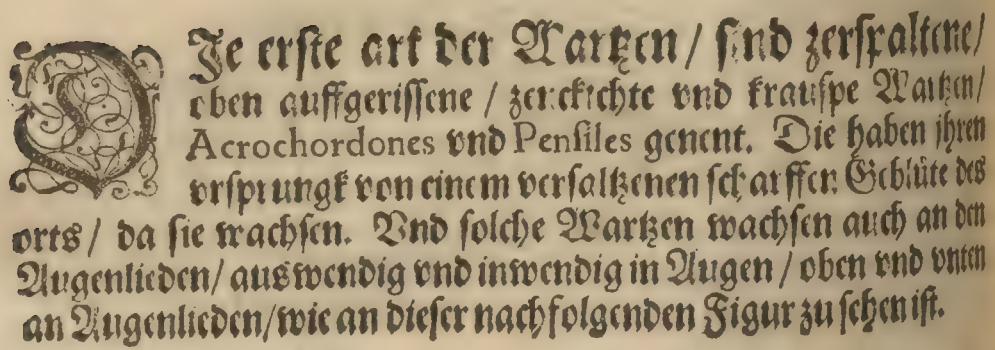 DIe erste art der Wartzen / sind zerspaltene /
oben auffgerissene / zerckichte vnd krauspe Wartzen /
Acrochordones vnd Pensiles genent. Die haben jhren
vrsprungk von einem versaltzenen scharffen Geblüte des
orts / da sie wachsen. Vnd solche Wartzen wachsen auch an den
Augenlieden / auswendig vnd inwendig in Augen / oben vnd vnten
an Augenlieden / wie an dieser nachfolgenden Figur zu sehen ist.